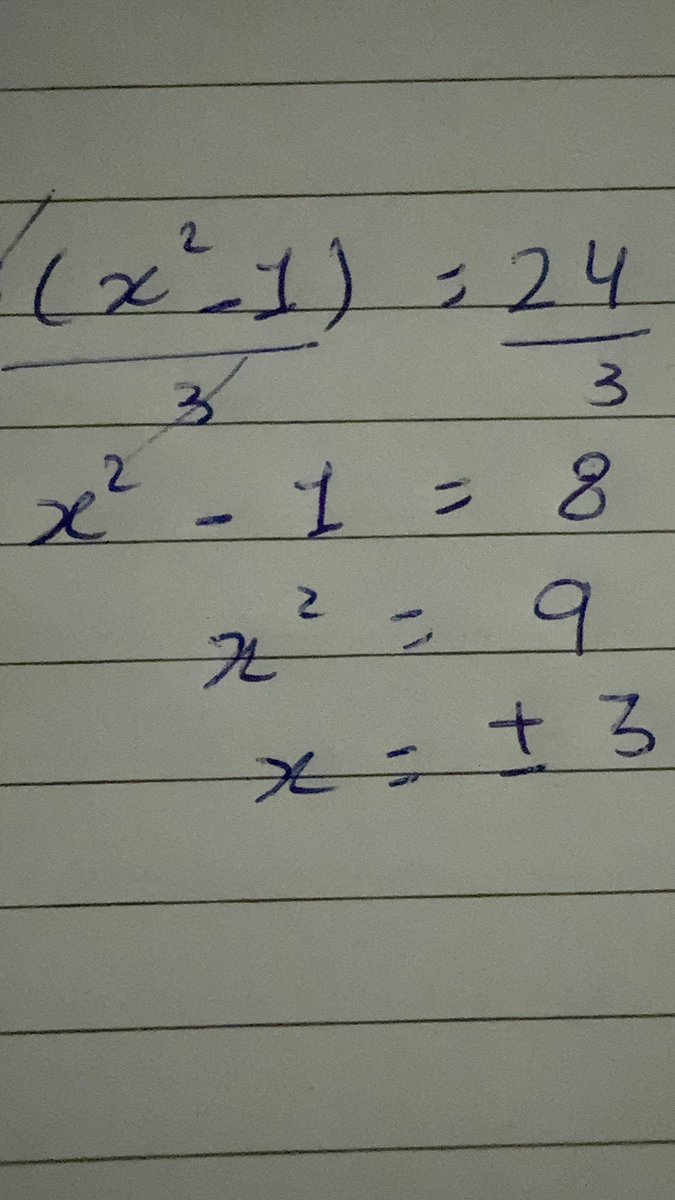 (x² - 1) = 24
3 3
x² - 1 = 8
x² = 9
x = ± 3